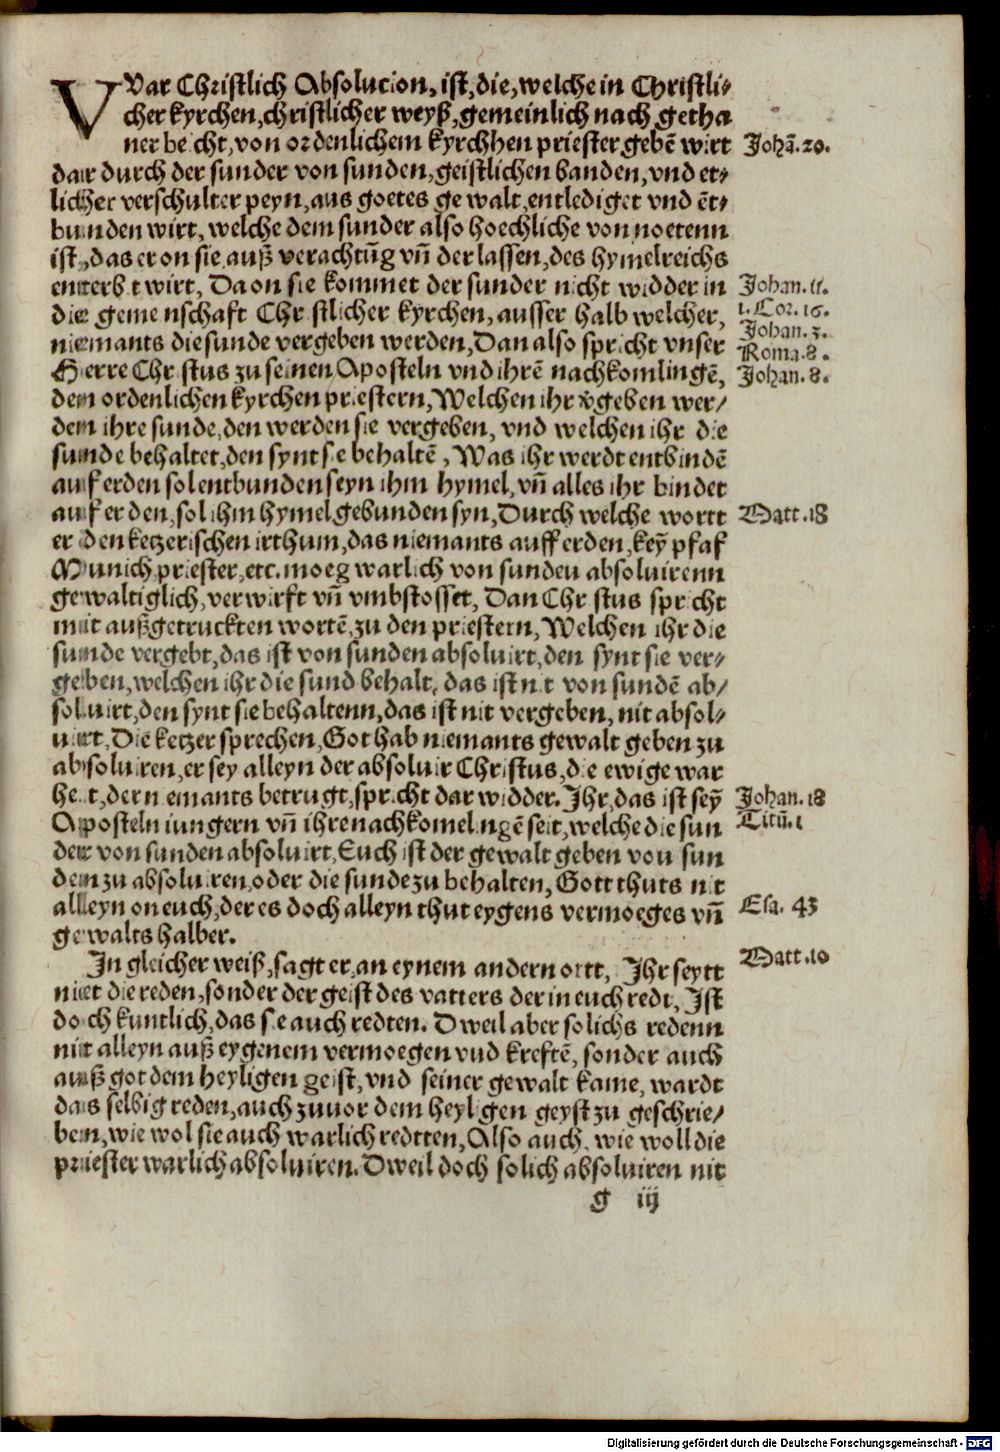 VVar Christlich Absolucion, ist, die, welche in Christli/
cher kyrchen, christlicher weyß, gemeinlich nach getha
ner beicht, von ordenlichem kyrchhen priester gebē wirt
Johā. 20.
dar durch der sunder von sunden, geistlichen banden, vnd et/
licher verschulter peyn, aus goetes gewalt, entlediget vnd ēt/
bunden wirt, welche dem sunder also hoechliche von noetenn
ist, das er on sie auß verachtūg vñ der lassen, des hymelreichs
enterbt wirt, Da on sie kommet der sunder nicht widder in
Johan. 11.
die gemeinschaft Christlicher kyrchen, ausser halb welcher,
1. Cor. 16.
niemants die sunde vergeben werden, Dan also spricht vnser
Johan. 3.
Roma. 8.
Herre Christus zu seinen Aposteln vnd ihrē nachkomlingē,
Johan. 8.
den ordenlichen kyrchen priestern, Welchen ihr v̄geben wer/
den ihre sunde, den werden sie vergeben, vnd welchen ihr die
sunde behaltet, den synt sie behaltē, Was ihr werdt entbindē
auf erden sol entbunden seyn ihm hymel, vñ alles ihr bindet
auf erden, sol ihm hymel gebunden syn, Durch welche wortt
Matt. 18
er den ketzerischen irthum, das niemants auff erden, keȳ pfaf
Munich, priester, etc. moeg warlich von sunden absoluirenn
gewaltiglich, verwirft vñ vmbstosset, Dan Christus spricht
mit außgetruckten wortē, zu den priestern, Welchen ihr die
sunde vergebt, das ist von sunden absoluirt, den synt sie ver/
geben, welchen ihr die sund behalt, das ist nit von sundē ab/
soluirt, den synt sie behaltenn, das ist nit vergeben, nit absol/
uirt, Die ketzer sprechen, Got hab niemants gewalt geben zu
absoluiren, er sey alleyn der absoluir Christus, die ewige war
heit, der niemants betrugt, spricht dar widder. Ihr, das ist seȳ
Johan. 18
Aposteln iungern vñ ihre nachkomelingē seit, welche die sun
Titū. 1
der von sunden absoluirt, Euch ist der gewalt geben vou sun
den zu absoluiren, oder die sunde zu behalten, Gott thuts nit
alleyn on euch, der es doch alleyn thut eygens vermoeges vñ
Esa. 43
gewalts halber.
In gleicher weiß, sagt er, an eynem andern ortt, Ihr seytt
Matt. 10
niet die reden, sonder der geist des vatters der in euch redt, Ist
doch kuntlich, das sie auch redten. Dweil aber solichs redenn
nit alleyn auß eygenem vermoegen vnd kreftē, sonder auch
auß got dem heyligen geist, vnd seiner gewalt kame, wardt
das selbig reden, auch zuuor dem heyligen geyst zu geschrie/
ben, wie wol sie auch warlich redtten, Also auch, wie woll die
priester warlich absoluiren. Dweil doch solich absoluiren nit
g iij
Digitalisierung gefördert durch die Deutsche Forschungsgemeinschaft - DFG